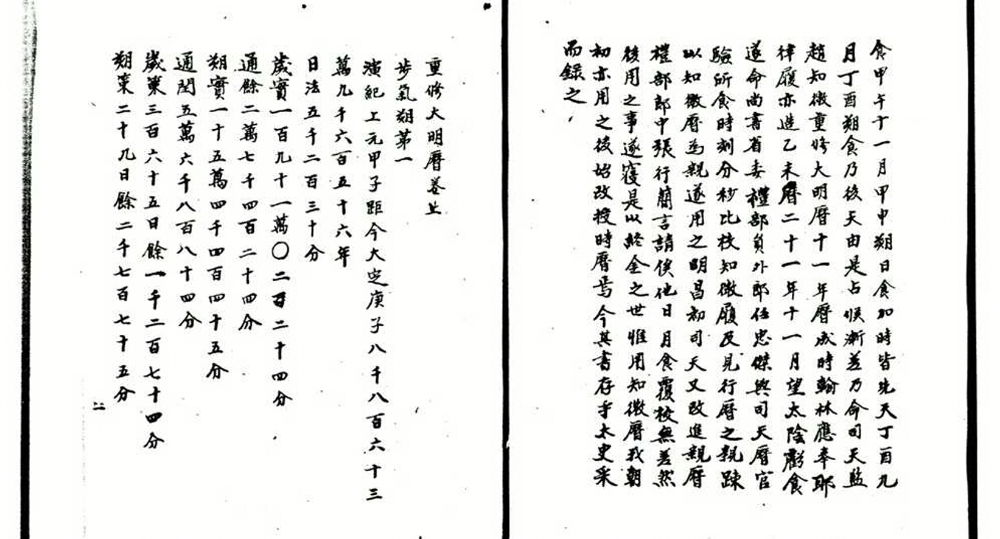 食甲午十一月甲申朔日食加時皆先天丁酉九
月丁酉朔食乃後天由是占候漸差乃命司天監
趙知微重修大明曆十一年曆成時翰林應奉耶
律履亦造乙未曆二十一年十一月望太陰虧食
遂命尚書省委禮部員外郎任忠傑與司天曆官
驗所食時刻分秒比校知微履及見行曆之親踈
以知微曆為親遂用之明昌初司天又改進親曆
禮部郎中張行簡言請俟他日月食覆校無差然
後用之事遂寢是以終金之世惟用知微曆我朝
初亦用之後始改授時曆焉今其書存乎太史采
而錄之
重修大明曆卷上
步氣朔第一
演紀上元甲子距今大定庚子八千八百六十三
萬九千六百五十六年
日法五千二百三十分
歲實一百九十一萬〇二百二十四分
通餘二萬七千四百二十四分
朔實一十五萬四千四百四十五分
通閏五萬六千八百八十四分
歲策三百六十五日餘一千二百七十四分
朔策二十九日餘二千七百七十五分
二